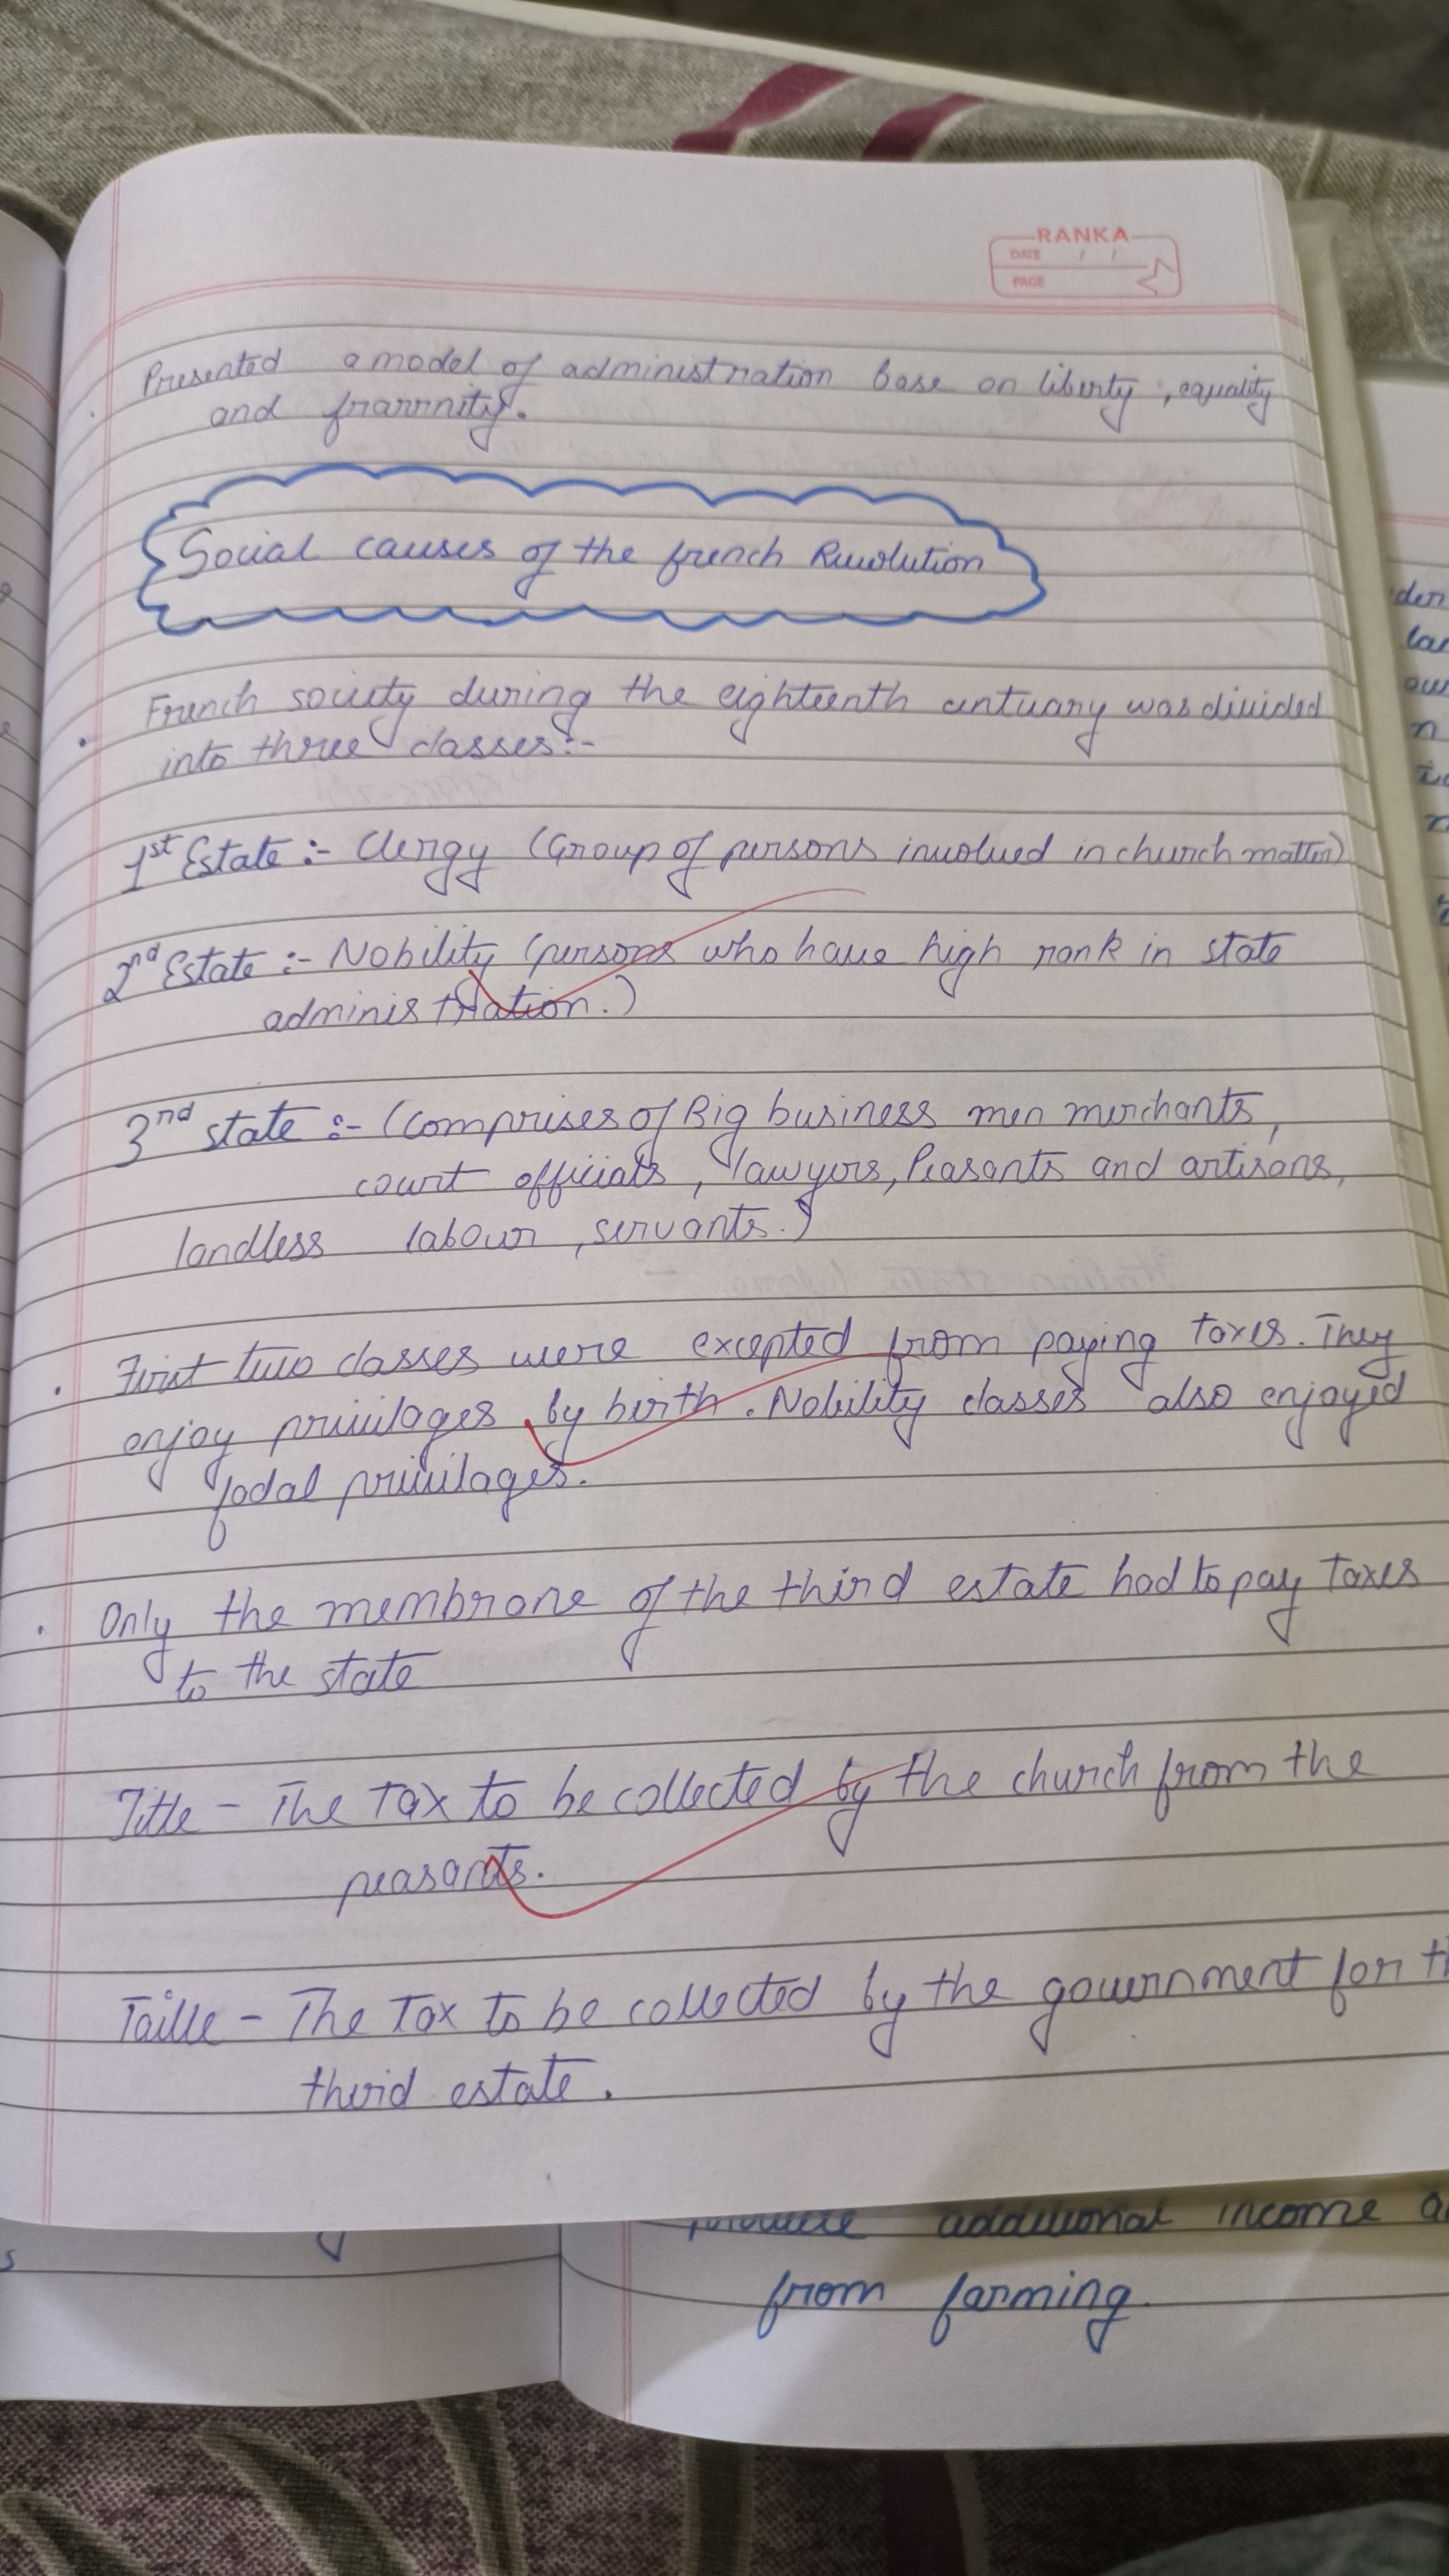 RANKA
DATE / /
PAGE
Presented a model of administration base on liberty, equality
and frarrnity.
Social causes of the french Revolution
French society during the eighteenth centuary was divided
into three classes:-
1st Estate :- Clergy (Group of persons involved in church matter)
2nd Estate :- Nobility (persons who have high rank in state
administration.)
3nd state :- (Comprises of Big business men merchants,
court officials, lawyers, Peasants and artisans,
landless labour, servants.)
First two classes were excepted from paying taxes. They
enjoy privilages by birth. Nobility classes also enjoyed
fodal privilages.
Only the membrane of the third estate had to pay taxes
to the state
Title - The Tax to be collected by the church from the
peasants.
Taille - The Tax to be collected by the government for th
third estate.
additional income a
from farming.